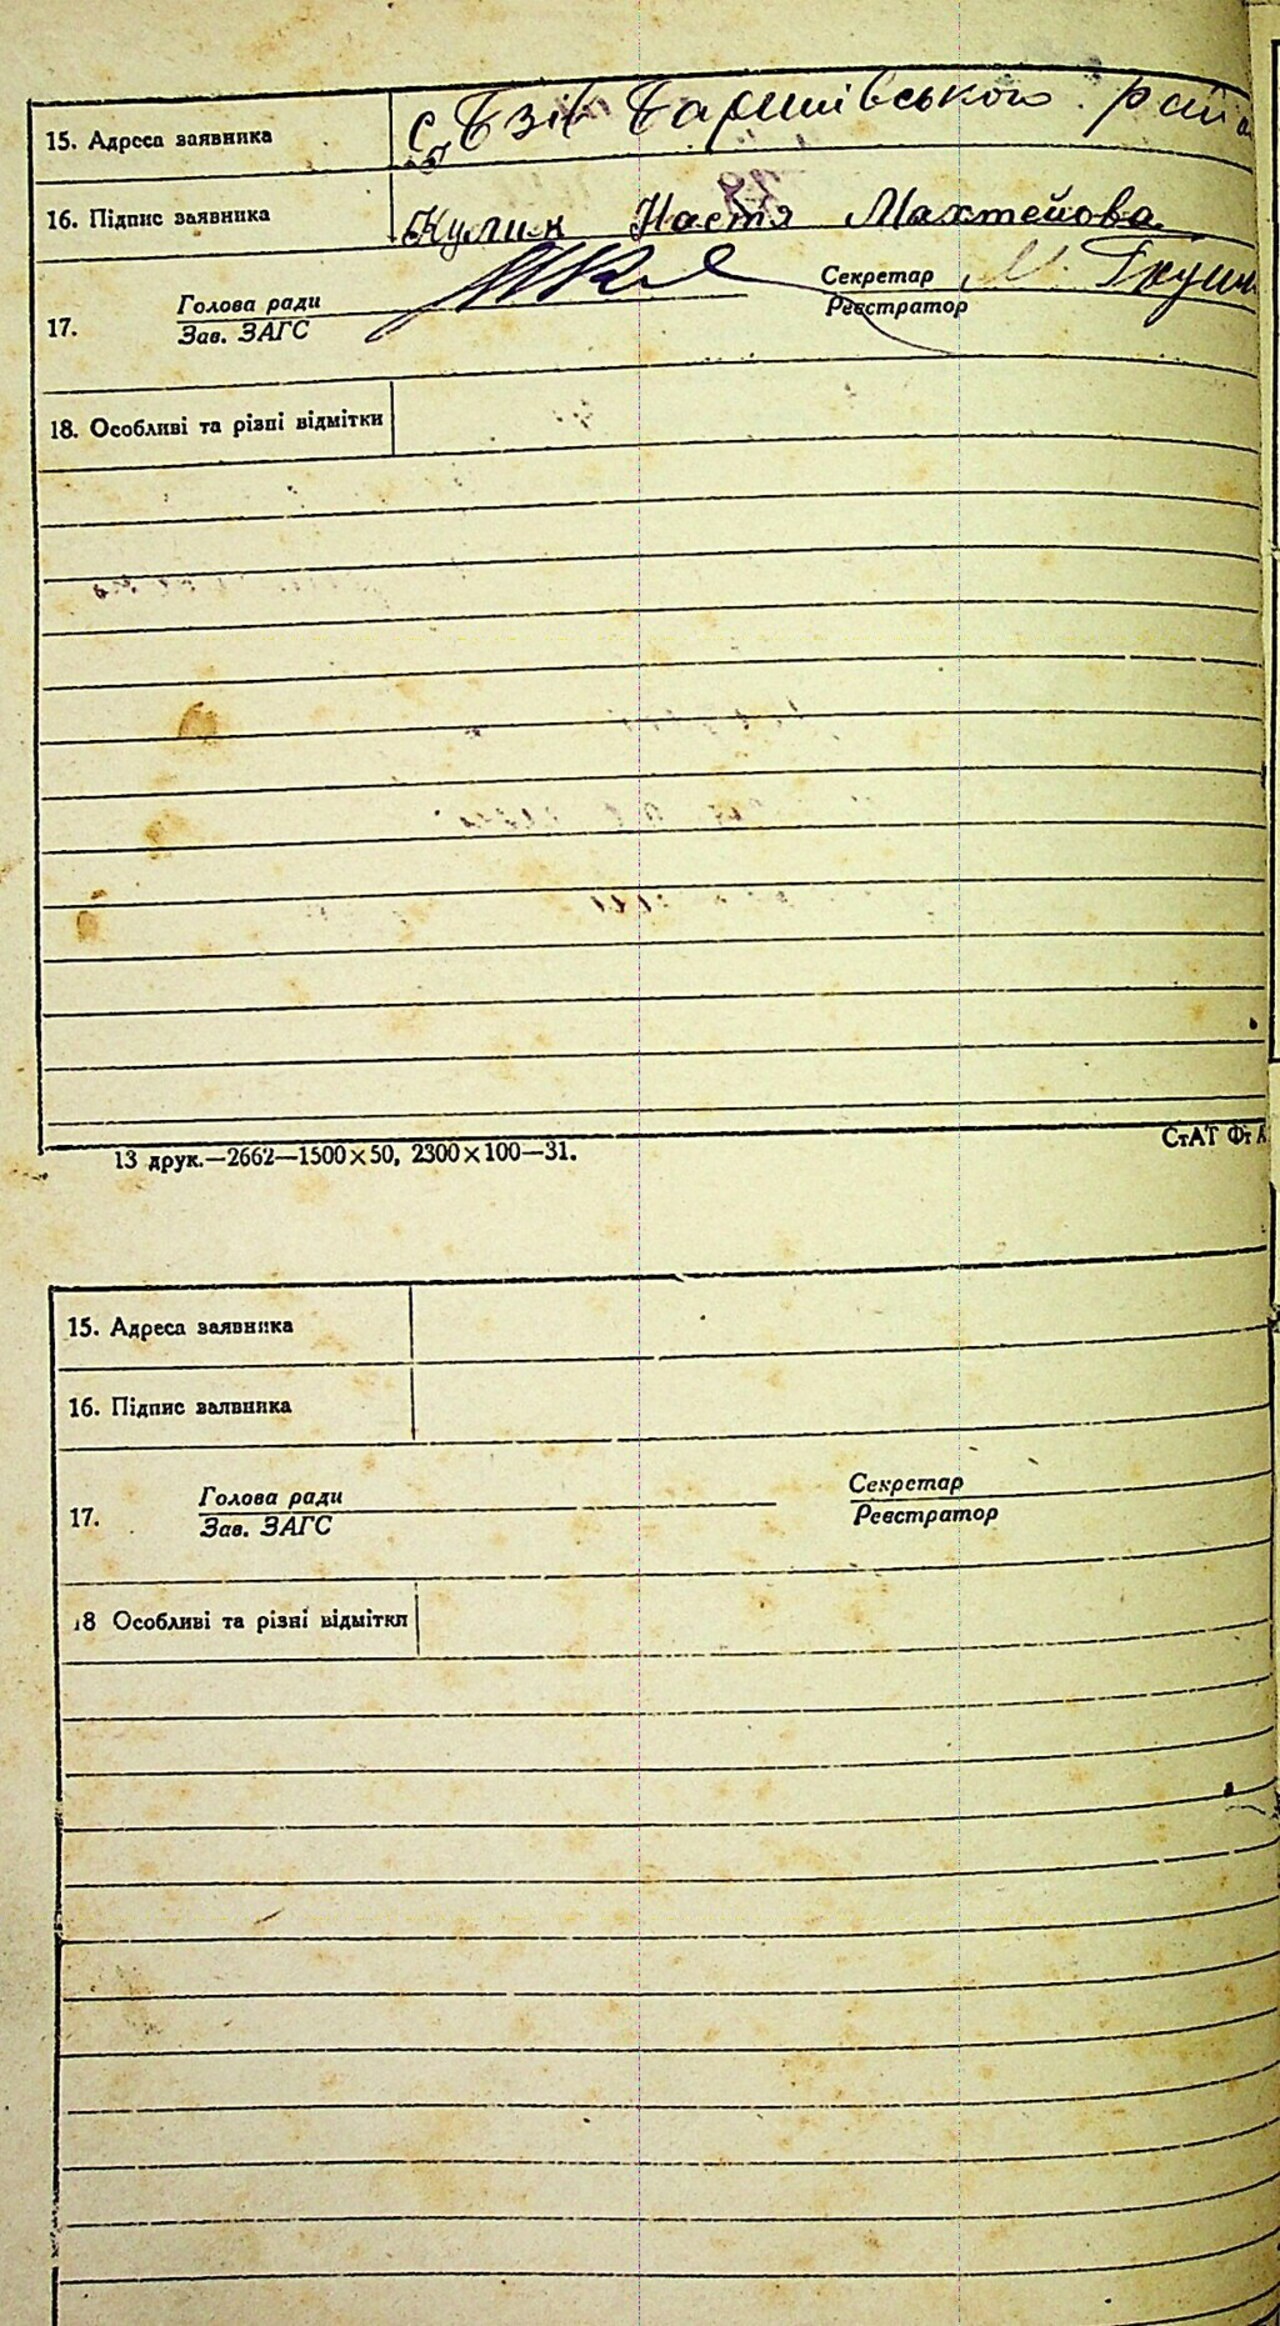 15. Адреса заявника с. Бзів Баришівського рай
16. Підпис заявника Кулик Настя Махтейова
17. Голова ради Секретар М.
Зав. ЗАГС Реєстратор
18. Особливі та різні відмітки
13 друк.—2662—1500×50, 2300×100—31. СтАТ Фт А
15. Адреса заявника
16. Підпис заявника
17. Голова ради Секретар
Зав. ЗАГС Реєстратор
18 Особливі та різні відмітки